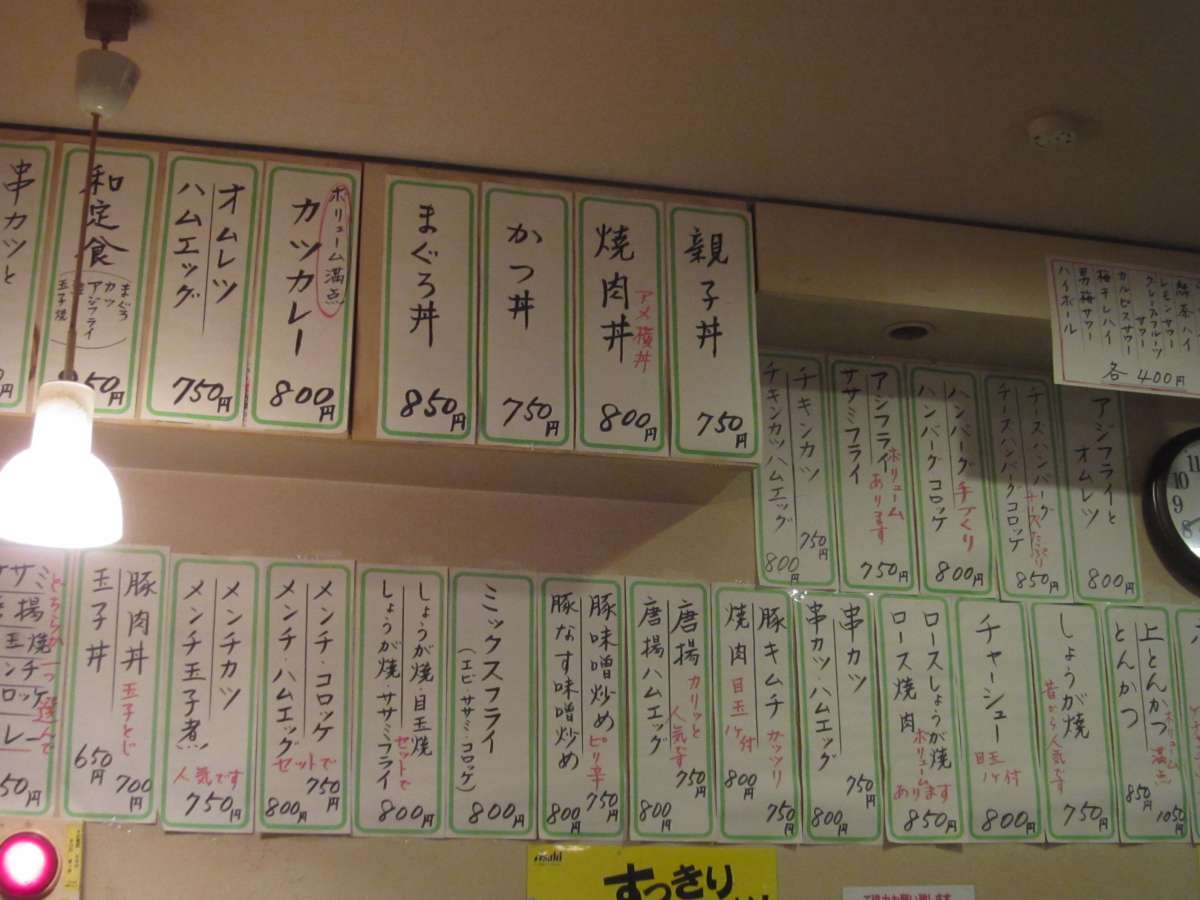 串カツと
和定食
まぐろ
カツ
アジフライ
玉子焼
50円
オムレツ
ハムエッグ
750円
ボリューム満点
カツカレー
800円
まぐろ丼
850円
かつ丼
750円
焼肉丼
アメ横丼
800円
親子丼
750円
チキンカツ
750円
チキンカツハムエッグ
800円
アジフライ
ササミフライ
ボリューム
あります
750円
ハンバーグ手づくり
ハンバーグコロッケ
800円
チーズハンバーグ
チーズハンバーグコロッケ
850円
アジフライと
オムレツ
800円
レモンサワー
グレープフルーツ
サワー
カルピスサワー
梅干しハイ
男梅サワー
ハイボール
各400円
11
10
9
8
どちらか一つ選んで
ササミ
唐揚
玉焼
ンチ
コロッケ
レー
50円
豚肉丼
玉子とじ
700円
玉子丼
650円
メンチカツ
メンチ玉子煮
人気です
750円
メンチ・コロッケ
750円
メンチ・ハムエッグ
セットで
800円
しょうが焼・目玉焼
しょうが焼ササミフライ
セットで
800円
ミックスフライ
(エビ・ササミ・コロッケ)
800円
豚味噌炒め
ピリ辛
750円
豚なす味噌炒め
800円
唐揚
カリッと
人気です
750円
唐揚ハムエッグ
800円
豚キムチ
ガッツリ
750円
焼肉目玉1ケ付
800円
串カツ
750円
串カツ・ハムエッグ
800円
ロースしょうが焼
ロース焼肉
ボリューム
あります
850円
チャーシュー
目玉
1ケ付
800円
しょうが焼
昔から人気です
750円
上とんかつ
ボリューム
満点
1050円
とんかつ
850円
Asahi
すっきり